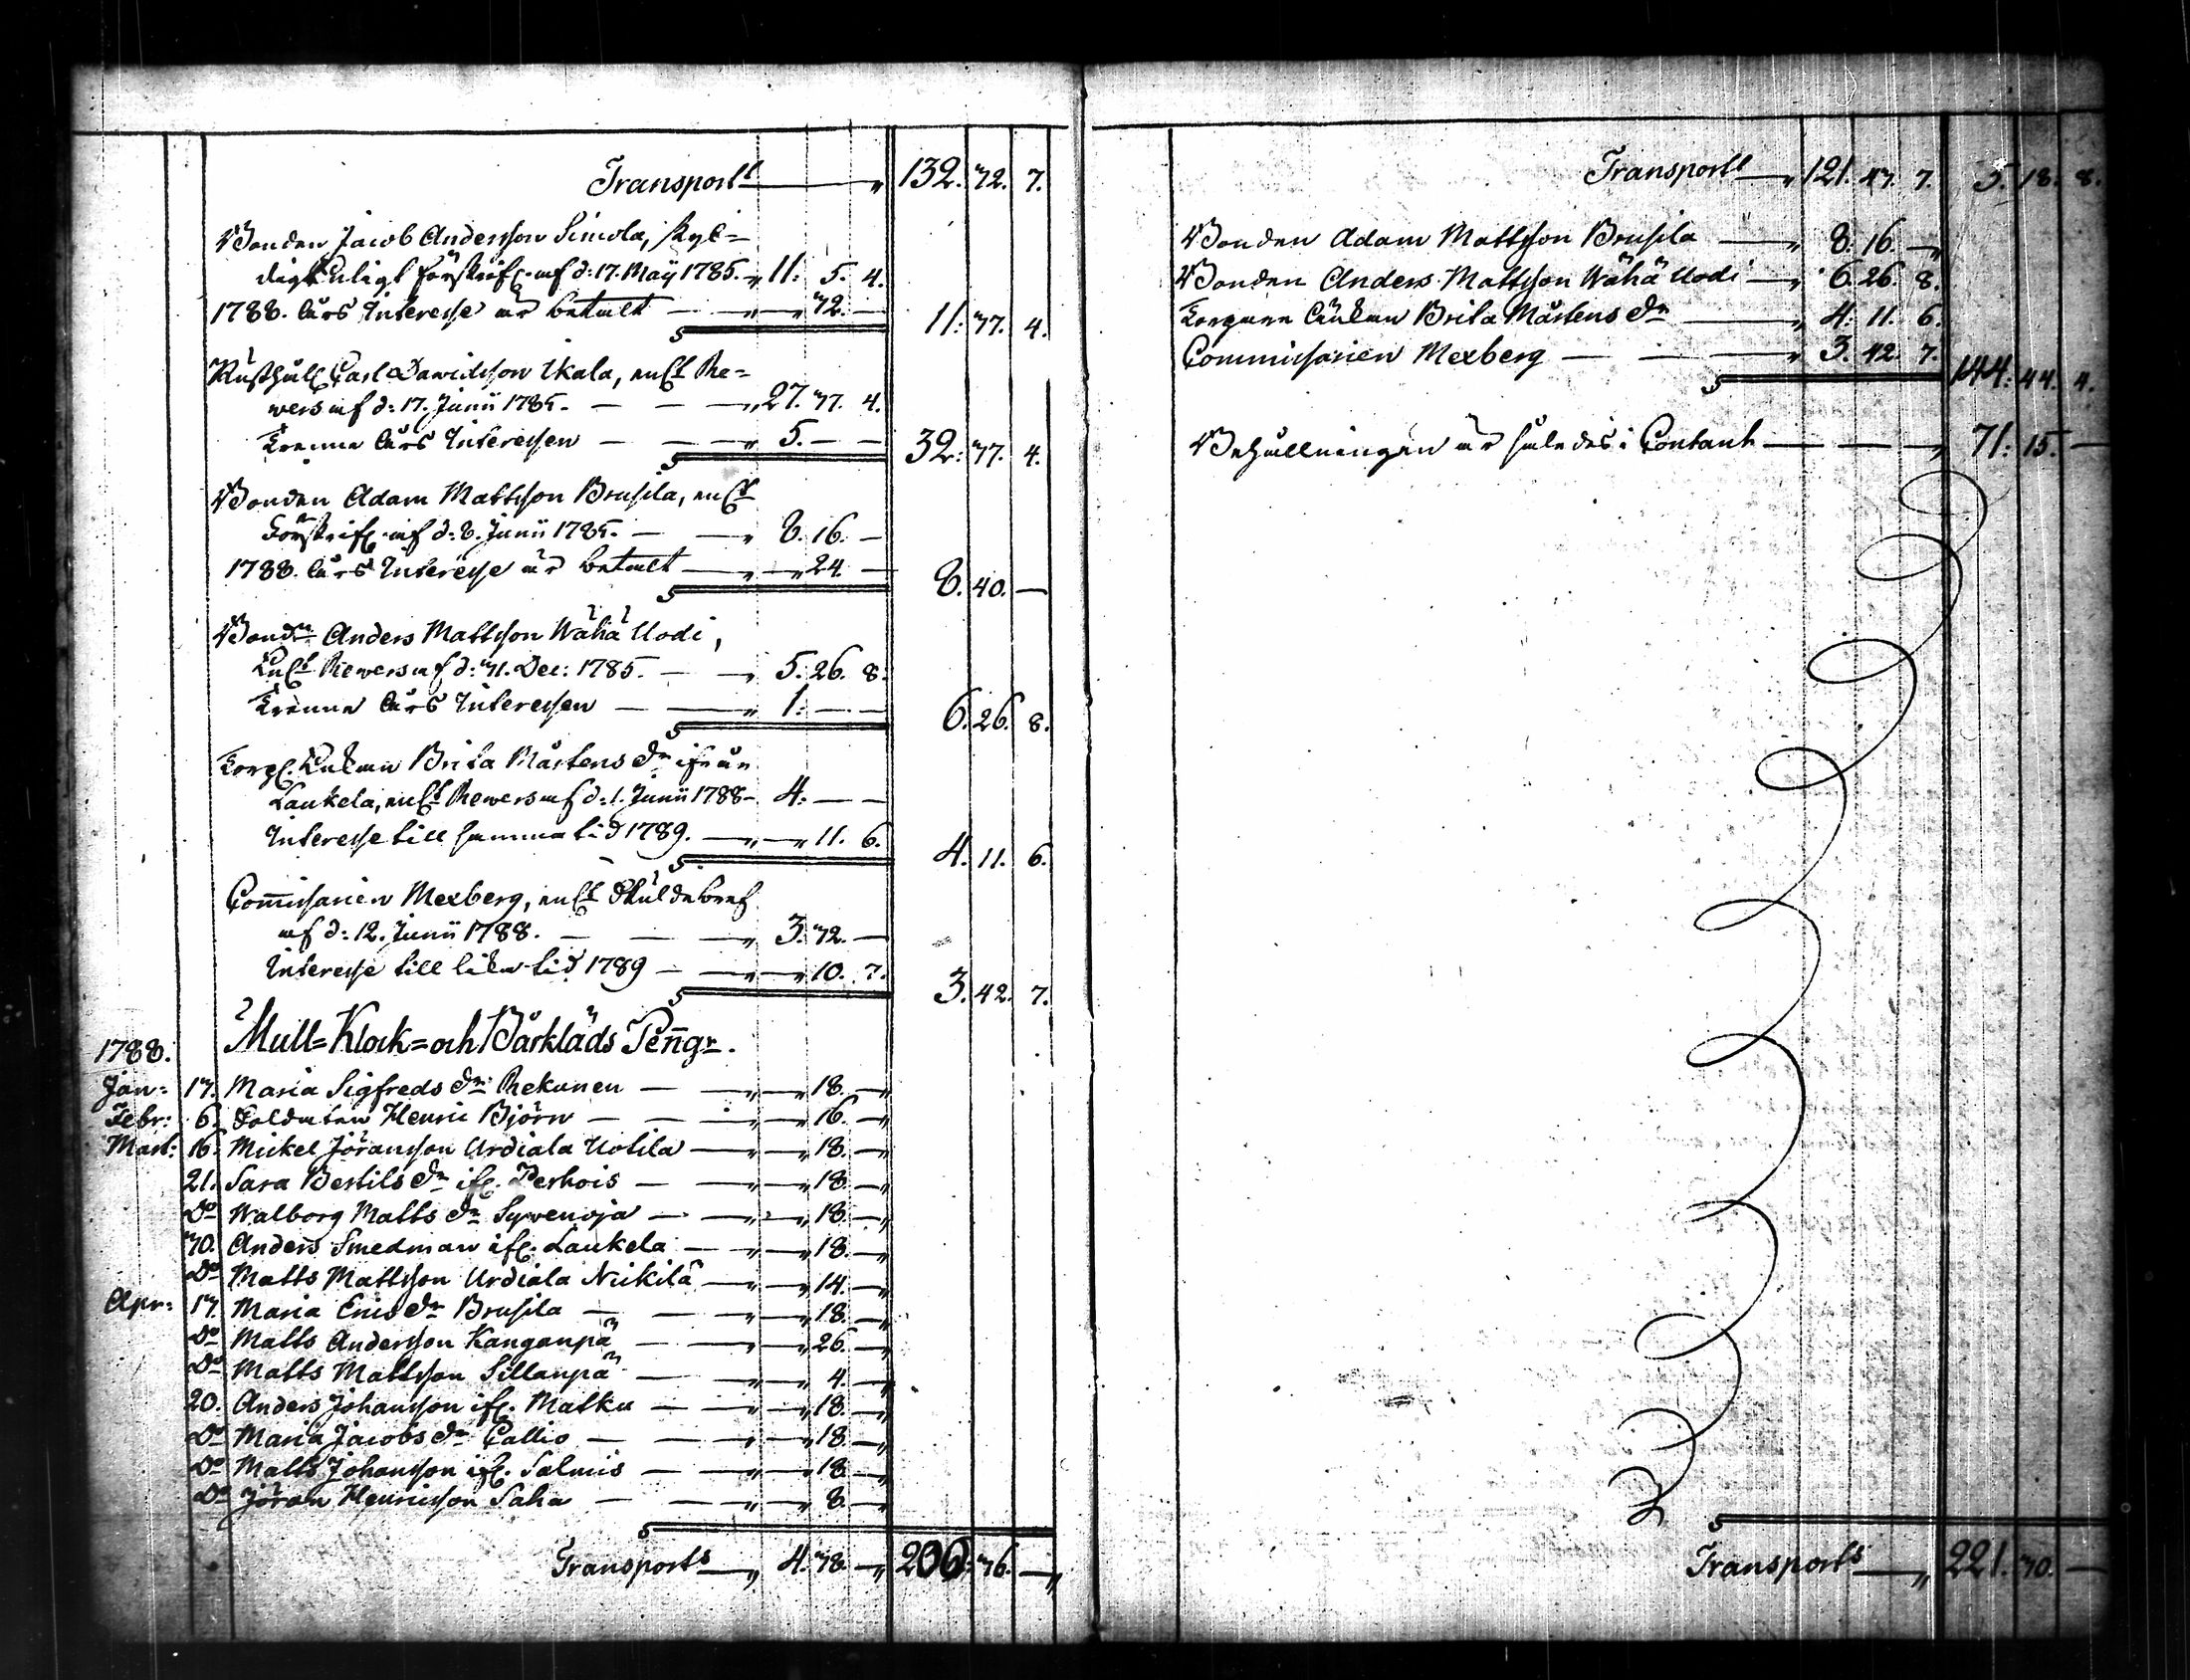 Transport 132. 32. 7.
Bonden Jacob Andersson Simola, skyl=
digt enligt förskrifn. af d: 17. Maij 1785. 11: 5. 4.
1788. års Interesse är betalt — 32. — 11: 37. 4.
Rusthåll. Carl Davidsson Ikala, enl.t Re=
vers af d: 17. Junii 1785. — 27. 37. 4.
Trenne års Interessen — 5. — — 32: 37. 4.
Bonden Adam Mattsson Brusila, enl.t
Förskrifn. af d: 8. Junii 1785. — 8. 16. —
1788. års Interesse är betalt — 24. — 8. 40. —
Bonden Anders Mattsson Wähä Uodi,
Enl.t Revers af d: 31. Dec: 1785. — 5. 26. 8.
Trenne års Interessen — 1: — — 6. 26. 8.
Torp. Enkan Brita Mårtens dr ifrån
Laukela, enl.t Revers af d: 1. Junii 1788 — 4: — —
Interesse till samma tid 1789. — 11. 6. 4. 11. 6.
Commissarien Mexberg, enl.t Skuldebref
af d: 12. Junii 1788. — 3. 32. —
Interesse till lika tid 1789 — 10. 7. 3. 42. 7.
1788. Mull= Klock= och Bårkläds Penngr.
Jan: 13. Maria Sigfreds dr Rekunen — 18. —
Febr: 6. Soldaten Henric Björn — 16. —
Mart: 16. Mickel Jöransson Urdiala Uotila — 18. —
21. Sara Bertils dr ifr. Perhois — 18. —
Do Walborg Matts dr Syvenoja — 18. —
30. Anders Smedman ifr. Laukela — 18. —
Do Matts Mattsson Urdiala Nickilä — 14. —
Apr: 13. Maria Erics dr Brusila — 18. —
Do Matts Andersson Kanganpä — 26. —
Do Matts Mattsson Sillanpä — 4. —
20. Anders Johansson ifr. Matku — 18. —
Do Maria Jacobs dr Callio — 18. —
Do Matts Johansson ifr. Salmis — 18. —
Do Jöran Henricsson Saha — 8. —
Transport 4. 38. — 200. 36. —
Transport 121. 43. 7. 5. 18. 8.
Bonden Adam Mattsson Brusila — 8. 16. —
Bonden Anders Mattsson Wähä Uodi — 6. 26. 8.
Torpare Enkan Brita Mårtens dr — 4: 11. 6.
Commissarien Mexberg — 3. 42. 7. 144: 44. 4.
Behållningen är således i Contant — 71: 15. —
Transport 221. 30. —